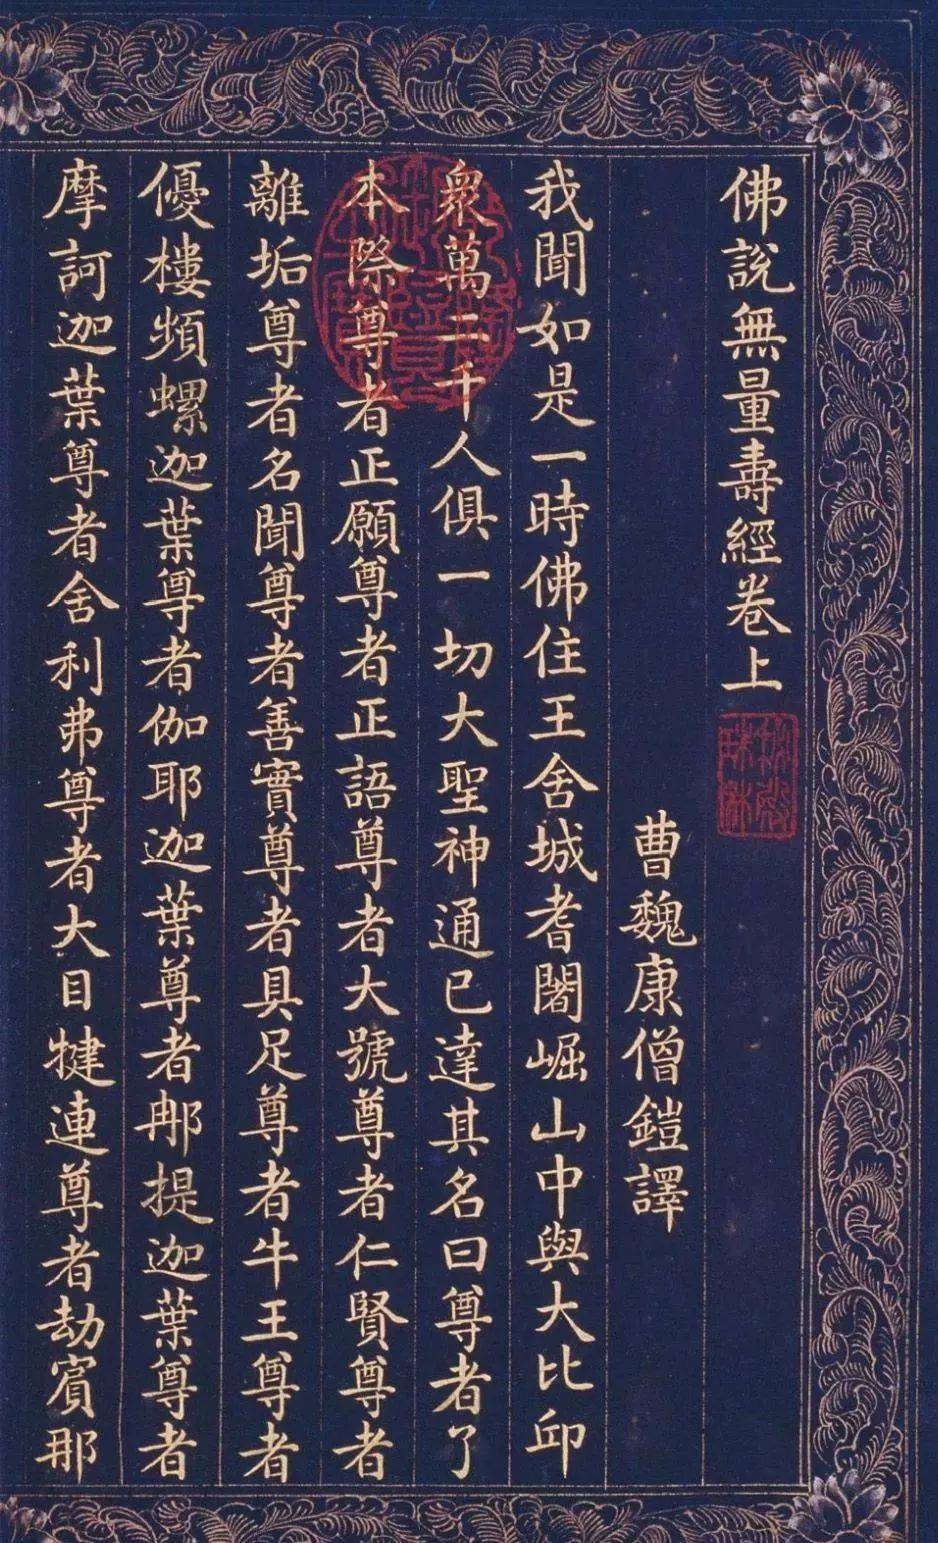 佛說無量壽經卷上
曹魏康僧鎧譯
我聞如是一時佛住王舍城耆闍崛山中與大比邱
衆萬二千人俱一切大聖神通已達其名曰尊者了
本際尊者正願尊者正語尊者大號尊者仁賢尊者
離垢尊者名聞尊者善實尊者具足尊者牛王尊者
優樓頻螺迦葉尊者伽耶迦葉尊者那提迦葉尊者
摩訶迦葉尊者舍利弗尊者大目犍連尊者劫賓那